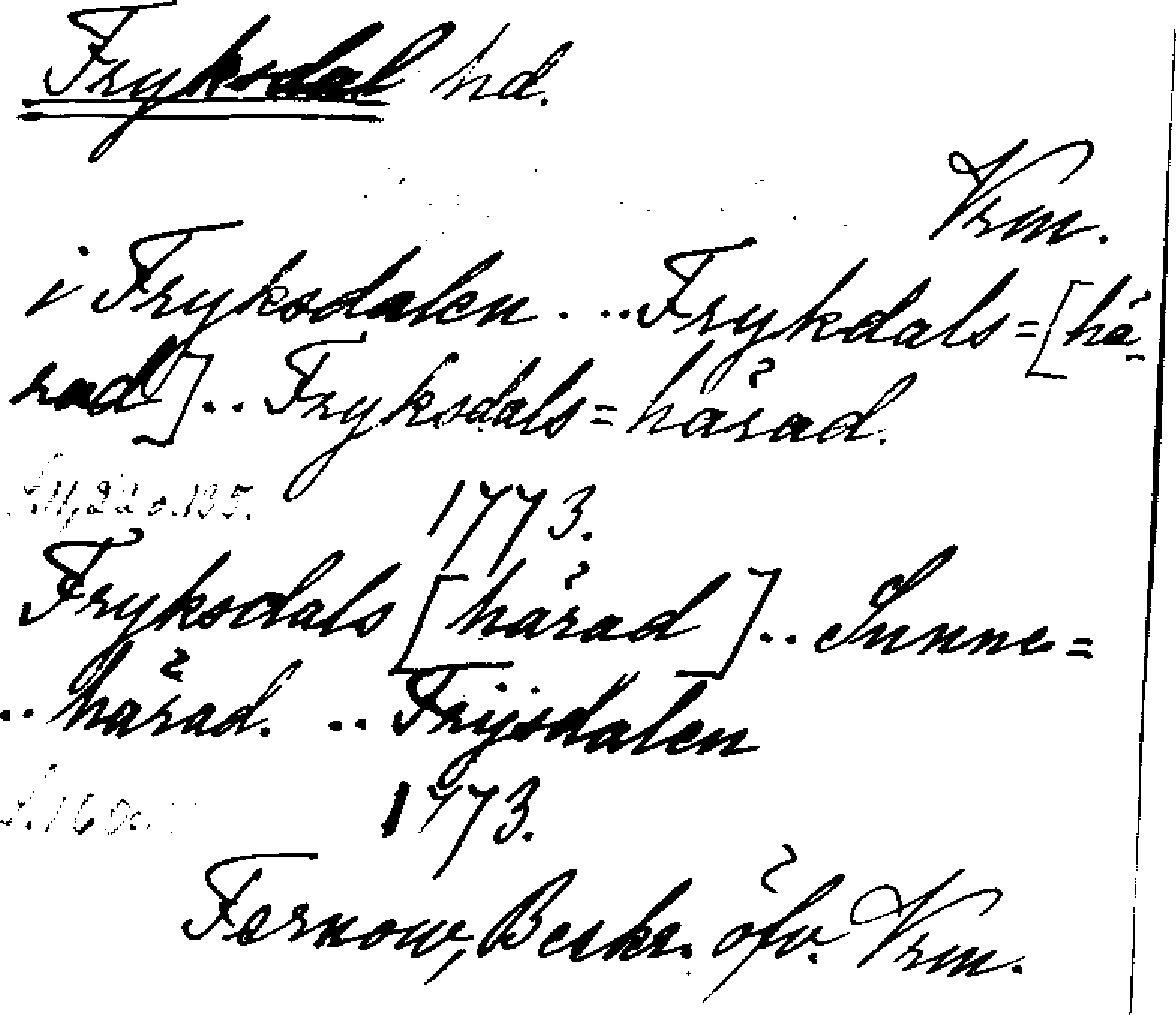 Fryksdal hd.
Vrm.
i Fryksdalen. ... Frykdals=[hä-
rad].. Fryksdals=härad.
1773.
Fryksdals [härad].. Sunne=
.. härad. .. Frijsdalen
1773.
Fernow, Beskr. öfv. Vrm.